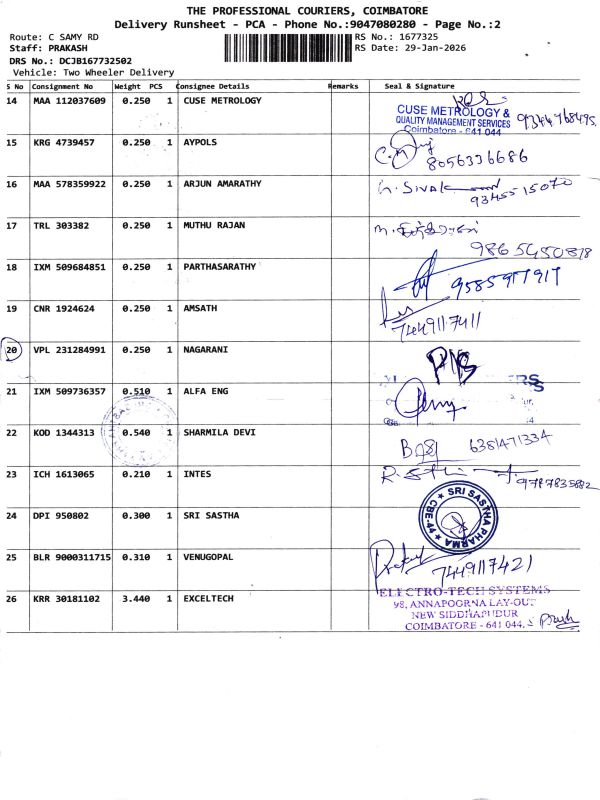 THE PROFESSIONAL COURIERS, COIMBATORE
Delivery Runsheet - PCA - Phone No.:9047080280 - Page No.:2
Route: C SAMY RD
RS No.: 1677325
Staff: PRAKASH
RS Date: 29-Jan-2026
DRS No.: DCJB167732502
Vehicle: Two Wheeler Delivery
S No Consignment No Weight PCS Consignee Details Remarks Seal & Signature
14 MAA 112037609 0.250 1 CUSE METROLOGY
CUSE METROLOGY &
QUALITY MANAGEMENT SERVICES
Coimbatore - 641 044
9344768495
15 KRG 4739457 0.250 1 AYPOLS
8056336686
16 MAA 578359922 0.250 1 ARJUN AMARATHY
9345515070
17 TRL 303382 0.250 1 MUTHU RAJAN
9865450878
18 IXM 509684851 0.250 1 PARTHASARATHY
9585977917
19 CNR 1924624 0.250 1 AMSATH
7449117411
20 VPL 231284991 0.250 1 NAGARANI
21 IXM 509736357 0.510 1 ALFA ENG
22 KOD 1344313 0.540 1 SHARMILA DEVI
6381471334
23 ICH 1613065 0.210 1 INTES
9787835882
24 DPI 950802 0.300 1 SRI SASTHA
SRI SASTHA PHARMA
CBE-44
25 BLR 9000311715 0.310 1 VENUGOPAL
7449117421
26 KRR 30181102 3.440 1 EXCELTECH
ELECTRO-TECH SYSTEMS
98, ANNAPOORNA LAY-OUT
NEW SIDDHAPUDUR
COIMBATORE - 641 044.